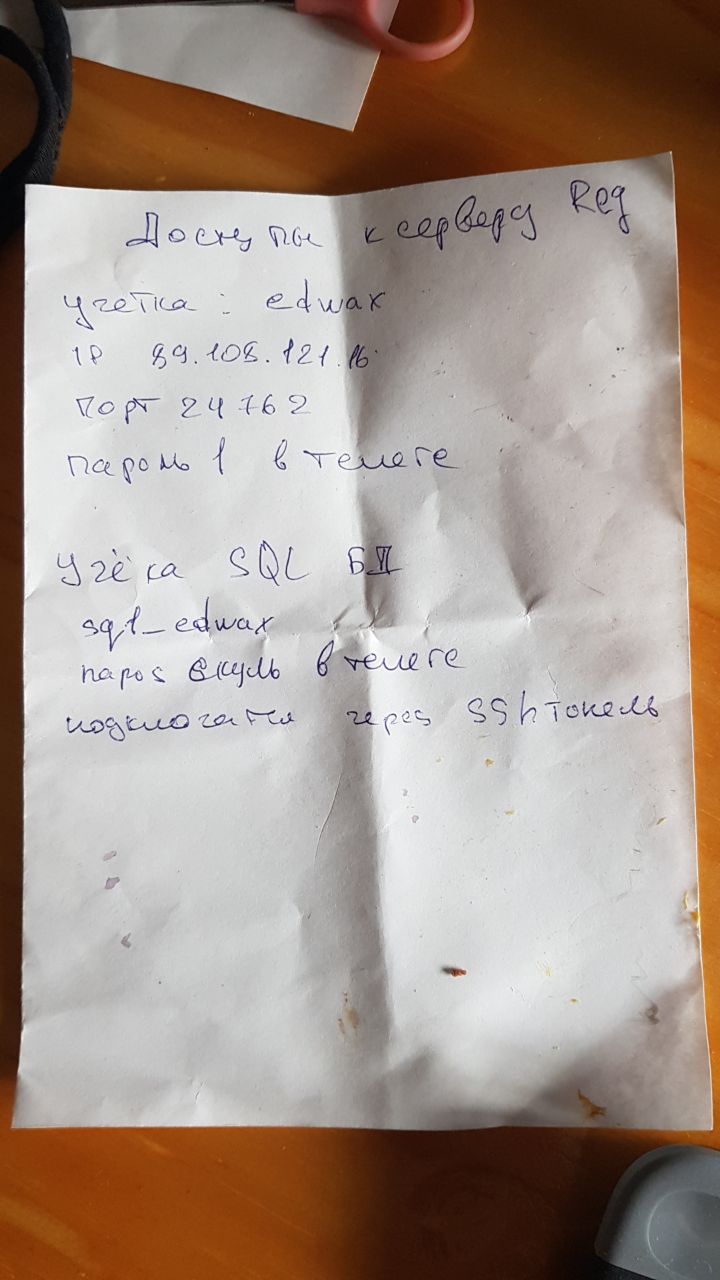 Доступы к серверу Reg
учетка : edwax
IP 89.108.121.16
Порт 24762
пароль 1 в телеге
Учёка SQL БД
sql_edwax
парос скуль в телеге
подключатся через ssh тонель